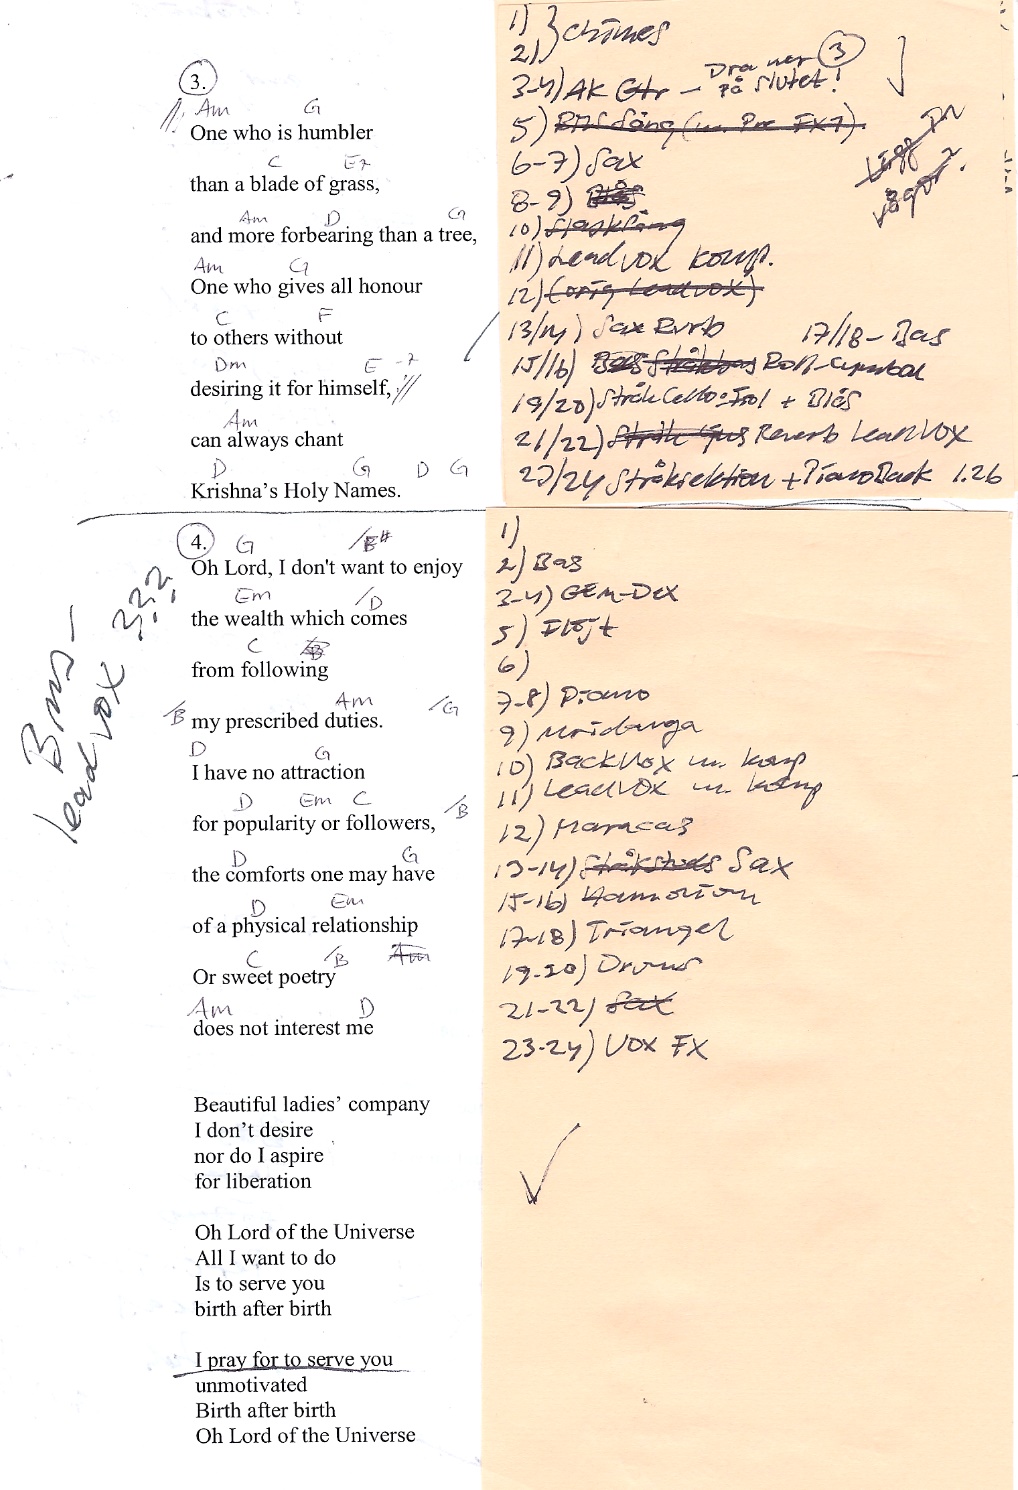 3.
Am G
One who is humbler
C E7
than a blade of grass,
Am D G
and more forbearing than a tree,
Am G
One who gives all honour
C F
to others without
Dm E -7
desiring it for himself,
Am
can always chant
D G D G
Krishna's Holy Names.
4.
G
Oh Lord, I don't want to enjoy
Em /D
the wealth which comes
C
from following
Am /G
/B my prescribed duties.
D G
I have no attraction
D Em C /B
for popularity or followers,
D G
the comforts one may have
D Em
of a physical relationship
C /B Am
Or sweet poetry
Am D
does not interest me
Beautiful ladies' company
I don't desire
nor do I aspire
for liberation
Oh Lord of the Universe
All I want to do
Is to serve you
birth after birth
I pray for to serve you
unmotivated
Birth after birth
Oh Lord of the Universe
lead vox ???
3
1)
2) } chimes
3-4) AK Gtr — Dra ner på slutet!
5)
6-7) Sax
8-9)
10)
11) Lead vox komp.
12) (orig Lead vox)
13/14) Sax Rvrb 17/18 - Bas
15/16) Roll-cymbal
19/20) Stråk Cello + Blås
21/22) Reverb Lead vox
23/24 Stråksektion + Piano Back 1.26
1)
2) Bas
3-4) GEM-Dex
5) Flöjt
6)
7-8) Piano
9) Mridanga
10) BackVox m. komp
11) LeadVox m. komp
12) Maracas
13-14) Sax
15-16)
17-18) Triangel
19-20) Drums
21-22) Sax
23-24) Vox FX